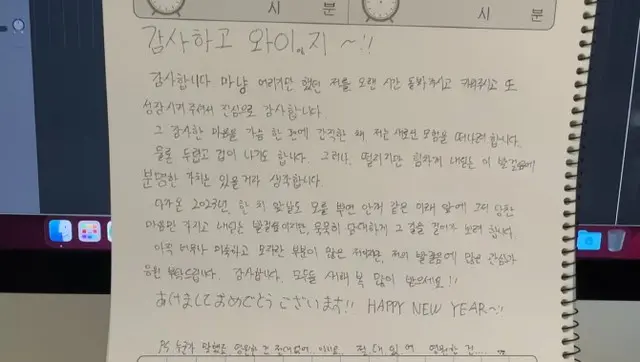 시 분
시 분
감사하고 와이,지 ~!!
감사합니다 마냥 어리기만 했던 저를 오랜 시간 돌봐주시고 키워주시고 또
성장시켜 주셔서 진심으로 감사합니다
그 감사한 마음을 가슴 한 켠에 간직한 채 저는 새로운 모험을 떠나려 합니다.
물론 두렵고 겁이 나기도 합니다. 그러나, 떨리지만 힘차게 내딛는 이 발걸음에
분명한 가치는 있을거라 생각합니다.
다가온 2023년, 한 치 앞날도 모를 뿌연 안개 같은 미래 앞에 그저 당찬
마음만 가지고 내딛는 발걸음이지만, 묵묵히 담대하게 그 길을 걸어가 보려 합니다.
아직 너무나 미흡하고 모자란 부분이 많은 저이지만, 저의 발걸음에 많은 관심과
응원 부탁드립니다. 감사합니다. 모두들 새해 복 많이 받으세요!!
あけましておめでとうございます!! HAPPY NEW YEAR~!!
PS 누군가 말했죠 영원한 건 절대 없어